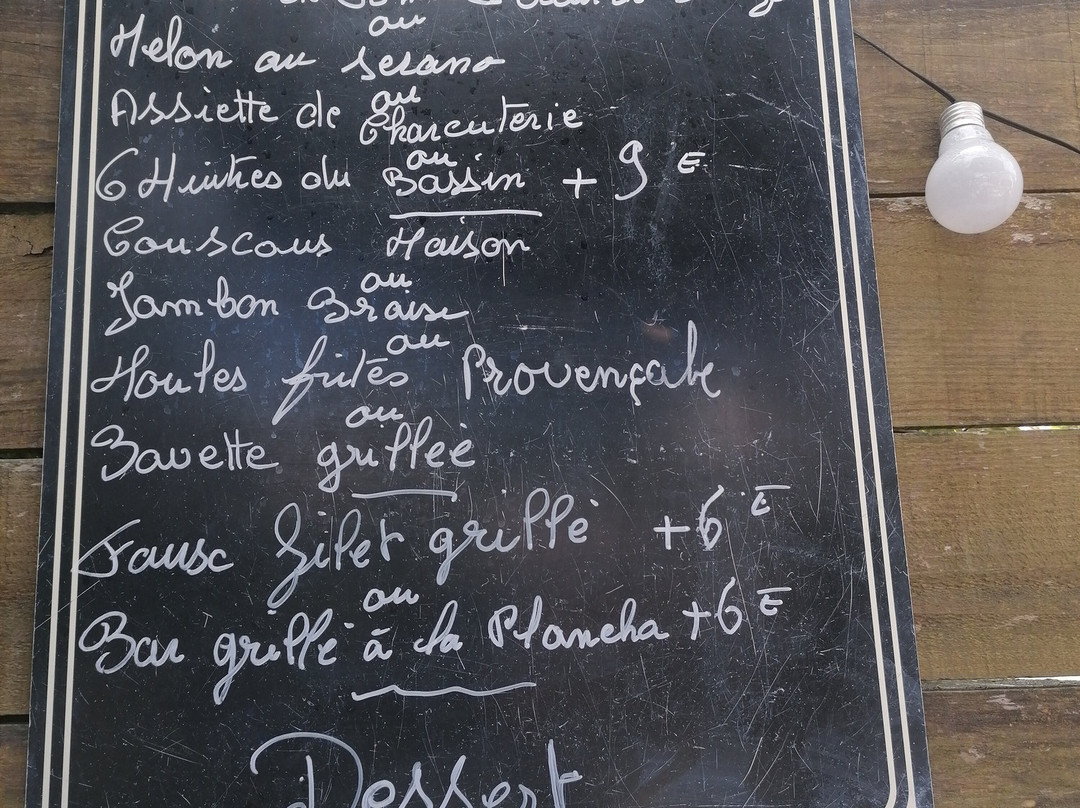 ou
Melon au serano
ou
Assiette de Charcuterie
ou
6 Huitres du Bassin + 9 E
Couscous Maison
ou
Jambon Braise
ou
Moules frites Provençale
ou
Bavette grillée
Faux Filet grillé +6 E
ou
Bar grillé à la Plancha +6 E
Dessert